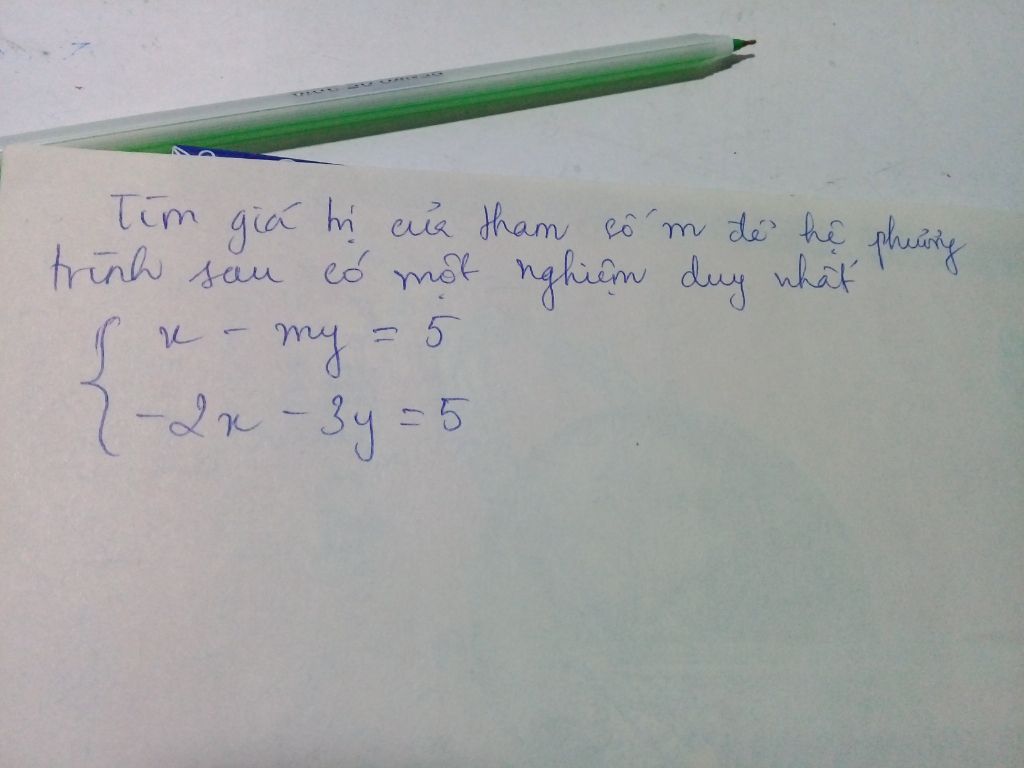 Tìm giá trị của tham số m để hệ phương
trình sau có một nghiệm duy nhất
x - my = 5
-2x - 3y = 5